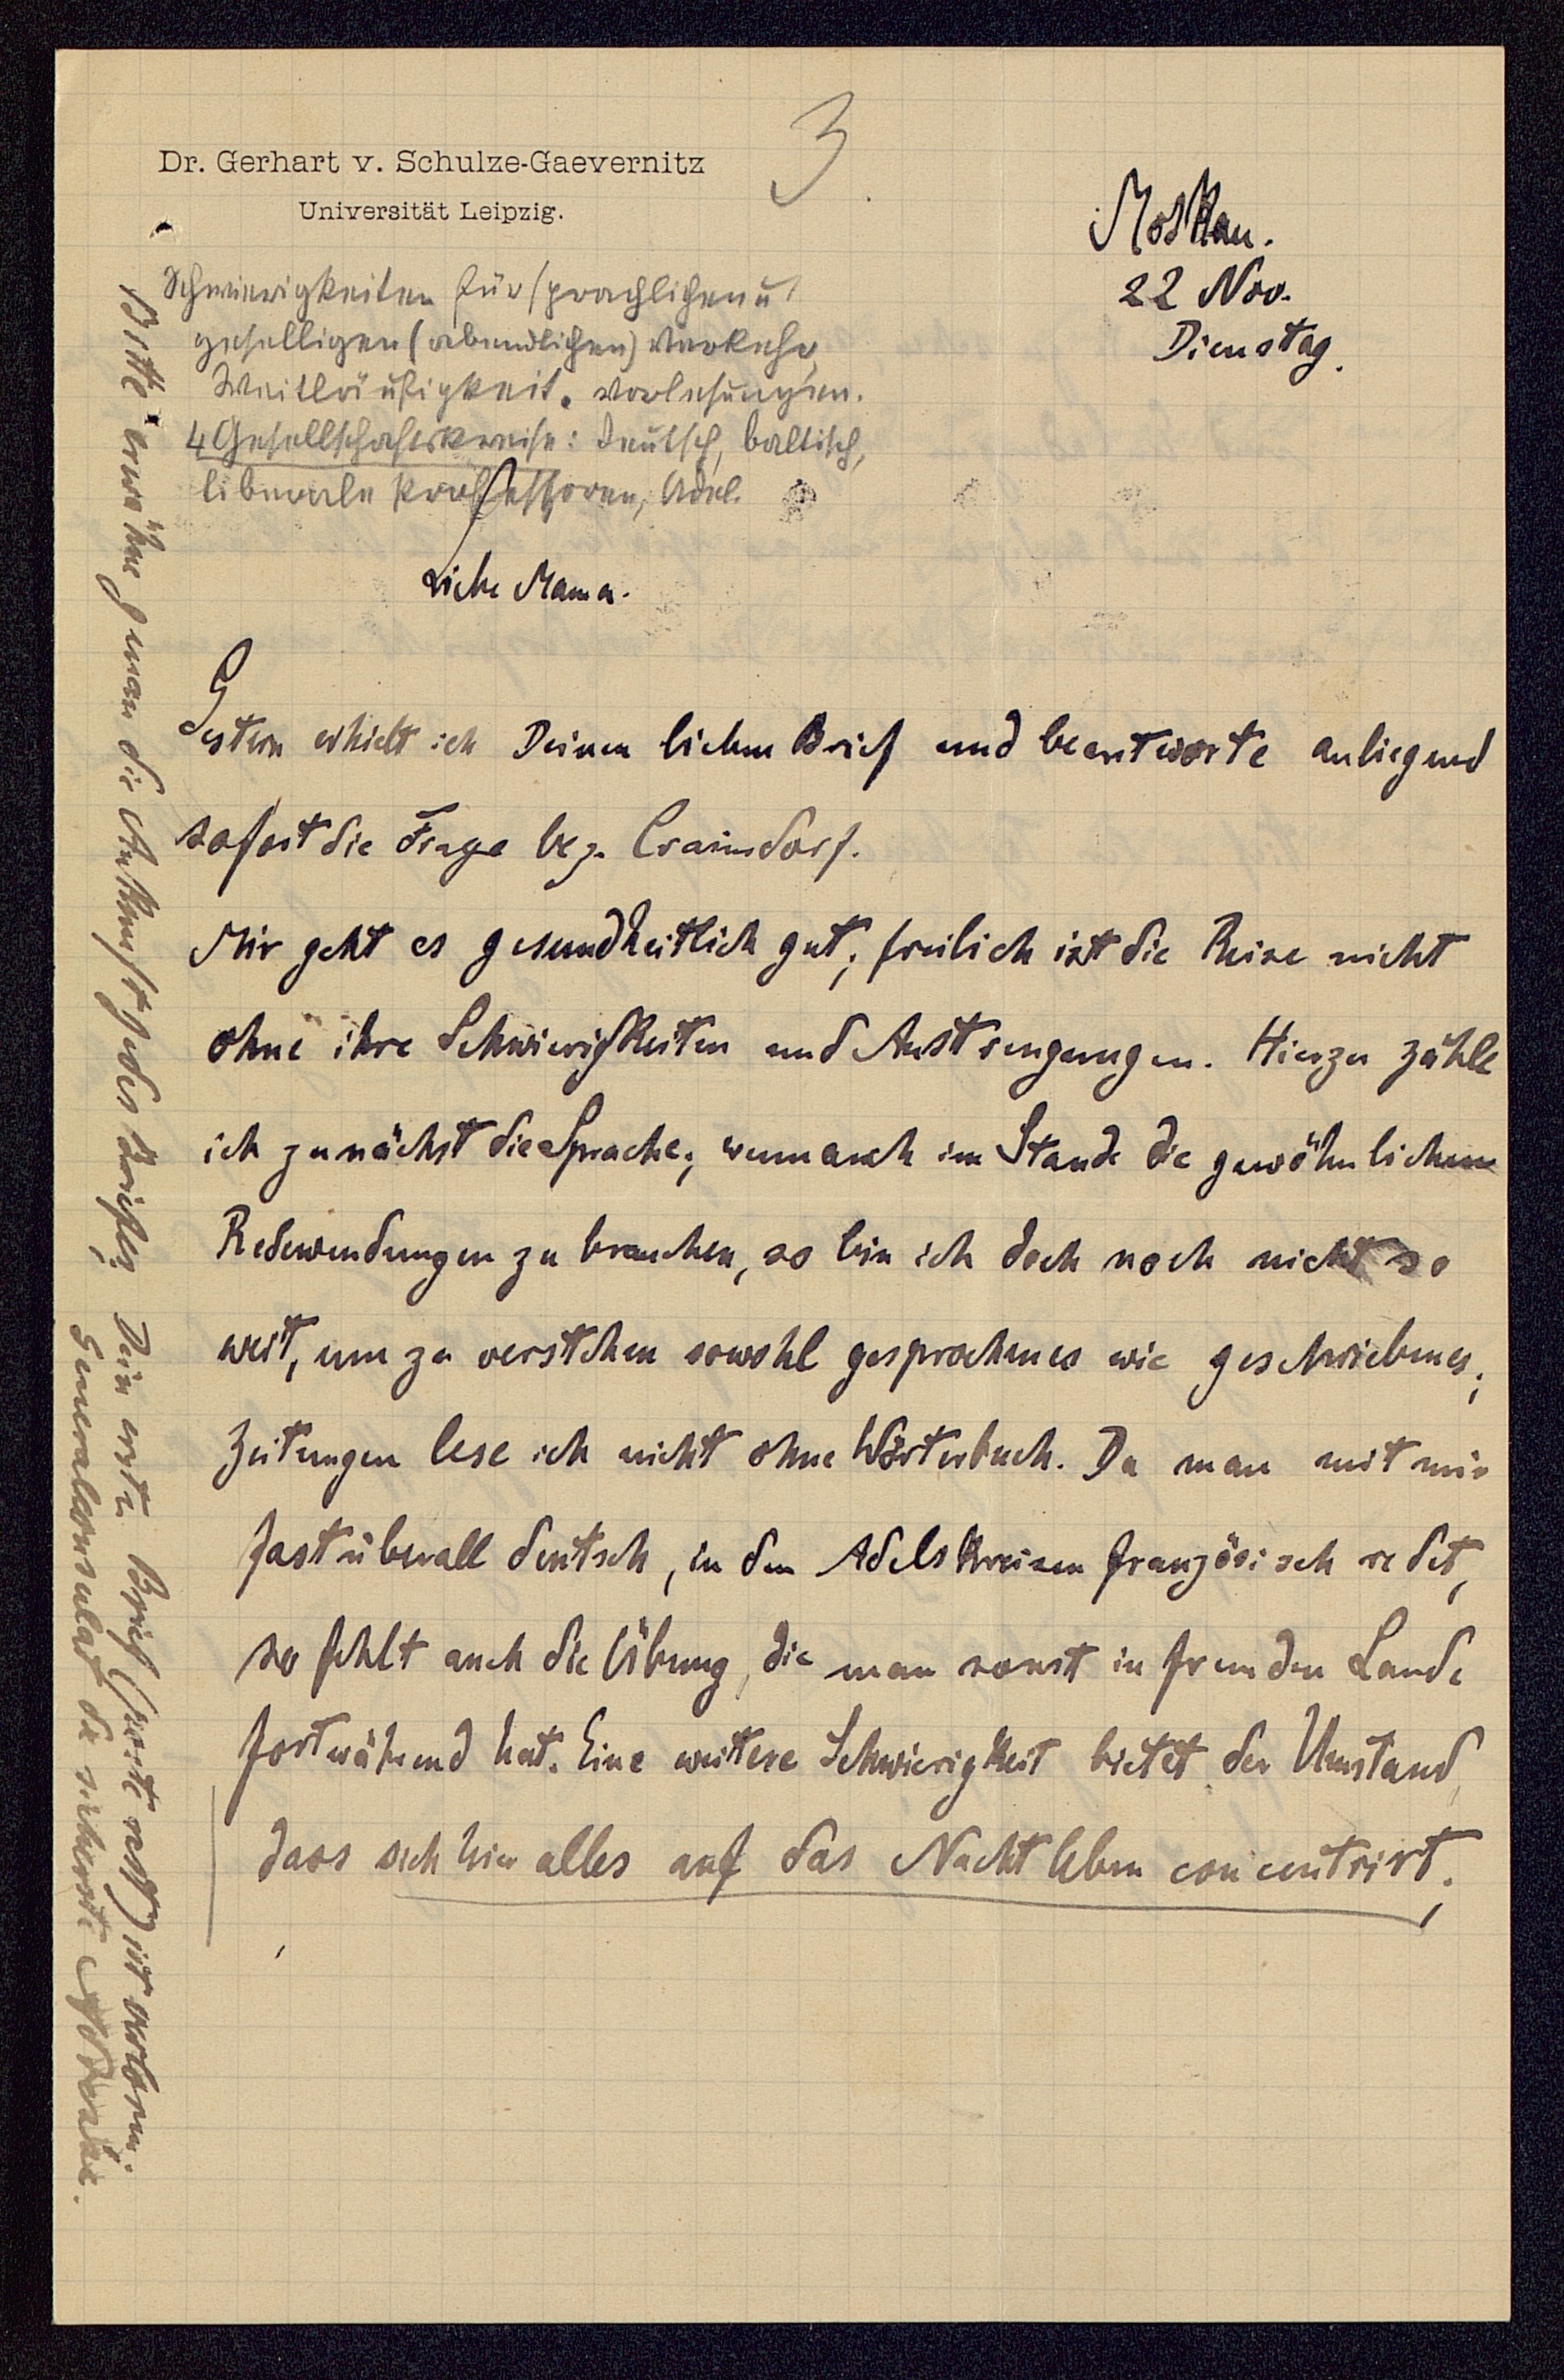 3
Dr. Gerhart v. Schulze-Gaevernitz
Universität Leipzig.
Moskau.
22 Nov.
Dienstag.
Schwierigkeiten für sprachlichen u
geselligen (abendlichen) Verkehr
Weitläufigkeit. Vorlesungen.
4 Gesellschaftskreise: deutsch, baltisch,
liberale Professoren, Adel.
Liebe Mama.
Gestern erhielt ich Deinen lieben Brief und beantworte anliegend
sofort die Frage bez. Crainsdorf.
Mir geht es gesundheitlich gut; freilich ist die Reise nicht
ohne ihre Schwierigkeiten und Anstrengungen. Hierzu zähle
ich zunächst die Sprache; wenn auch im Stande die gewöhnlichen
Redewendungen zu brauchen, so bin ich doch noch nicht so
weit, um zu verstehen sowohl gesprochenes wie geschriebenes;
Zeitungen lese ich nicht ohne Wörterbuch. Da man mit mir
fast überall deutsch, in den Adelskreisen französisch redet,
so fehlt auch die Übung, die man sonst in fremden Lande
fortwährend hat. Eine weitere Schwierigkeit bietet der Umstand,
dass sich hier alles auf das Nachtleben concentrirt;
Bitte erwähne genau die Ankunft jedes Briefes,
Dein erster Brief (poste rest) ist verloren.
Generalconsulat die sicherste Adresse.